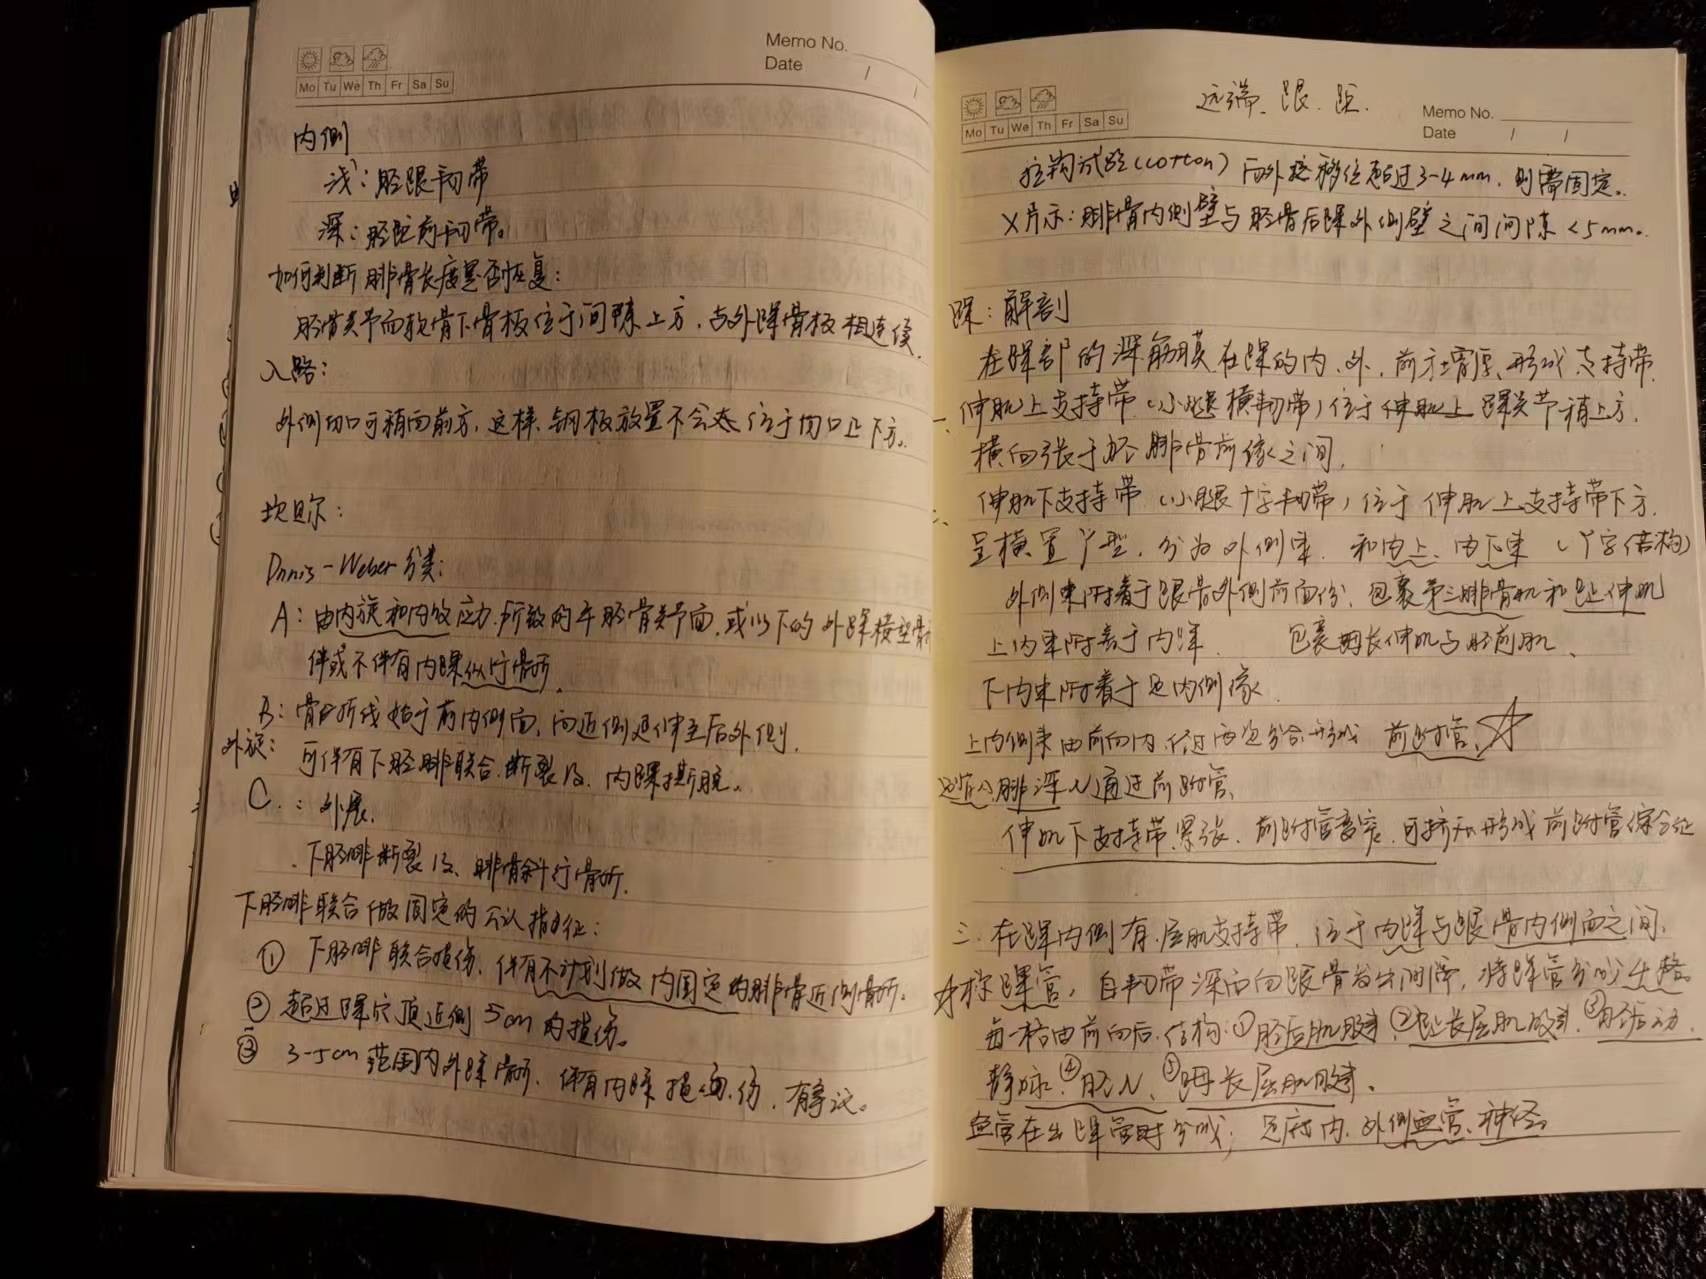 Memo No.
Date / /
Mo Tu We Th Fr Sa Su
内侧
浅：胫跟韧带
深：胫距前韧带。
如何判断腓骨长度是否恢复：
胫骨关节面软骨下骨板位于间隙上方，与外踝骨板相连续.
入路：
外侧切口可稍向前方，这样，钢板放置不会太位于切口正下方。
坎贝尔：
Dnnis-Weber分类：
A：由内旋和内收应力所致的平胫骨关节面，或以下的外踝横型骨
伴或不伴有内踝纵行骨折.
B：骨折线始于前内侧面，向近侧延伸至后外侧.
外旋：可伴有下胫腓联合断裂及内踝撕脱。
C.：外展.
下胫腓断裂及、腓骨斜行骨折.
下胫腓联合做固定的公认指征：
① 下胫腓联合损伤，伴有不计划做内固定的腓骨近侧骨折。
② 超过踝穴顶近侧5cm的损伤。
③ 3-5cm范围内外踝骨折，伴有内踝损伤，有争议。
远端、跟、距.
Memo No.
Date / /
Mo Tu We Th Fr Sa Su
拉钩试验(cotton) 向外移位超过3-4mm，则需固定。
X片示：腓骨内侧壁与胫骨后踝外侧壁之间间隙<5mm。
踝：解剖
在踝部的深筋膜在踝的内、外、前方增厚，形成支持带.
一、伸肌上支持带（小腿横韧带）位于伸肌上踝关节稍上方.
横向张于胫腓骨前缘之间.
二、伸肌下支持带（小腿十字韧带）位于伸肌上支持带下方.
呈横置Y型，分为外侧束，和内上、内下束（Y字结构）
外侧束附着于跟骨外侧前面份，包裹第三腓骨肌和趾伸肌
上内束附着于内踝. 包裹拇长伸肌与胫前肌、
下内束附着于足内侧缘.
上内侧束由前向内，分合形成 前跗管.☆
腓深N通过前跗管、
伸肌下支持带紧张，前跗管变窄，可形成前跗管综合征
三.在踝内侧有屈肌支持带，位于内踝与跟骨内侧面之间.
☆称踝管，自韧带深面向跟骨发出间隔，将踝管分为4格。
每一格由前向后，结构：①胫后肌腱②趾长屈肌腱，③胫后动.
静脉.④胫N、⑤拇长屈肌腱。
血管在出踝管时分成；足底内、外侧血管、神经。